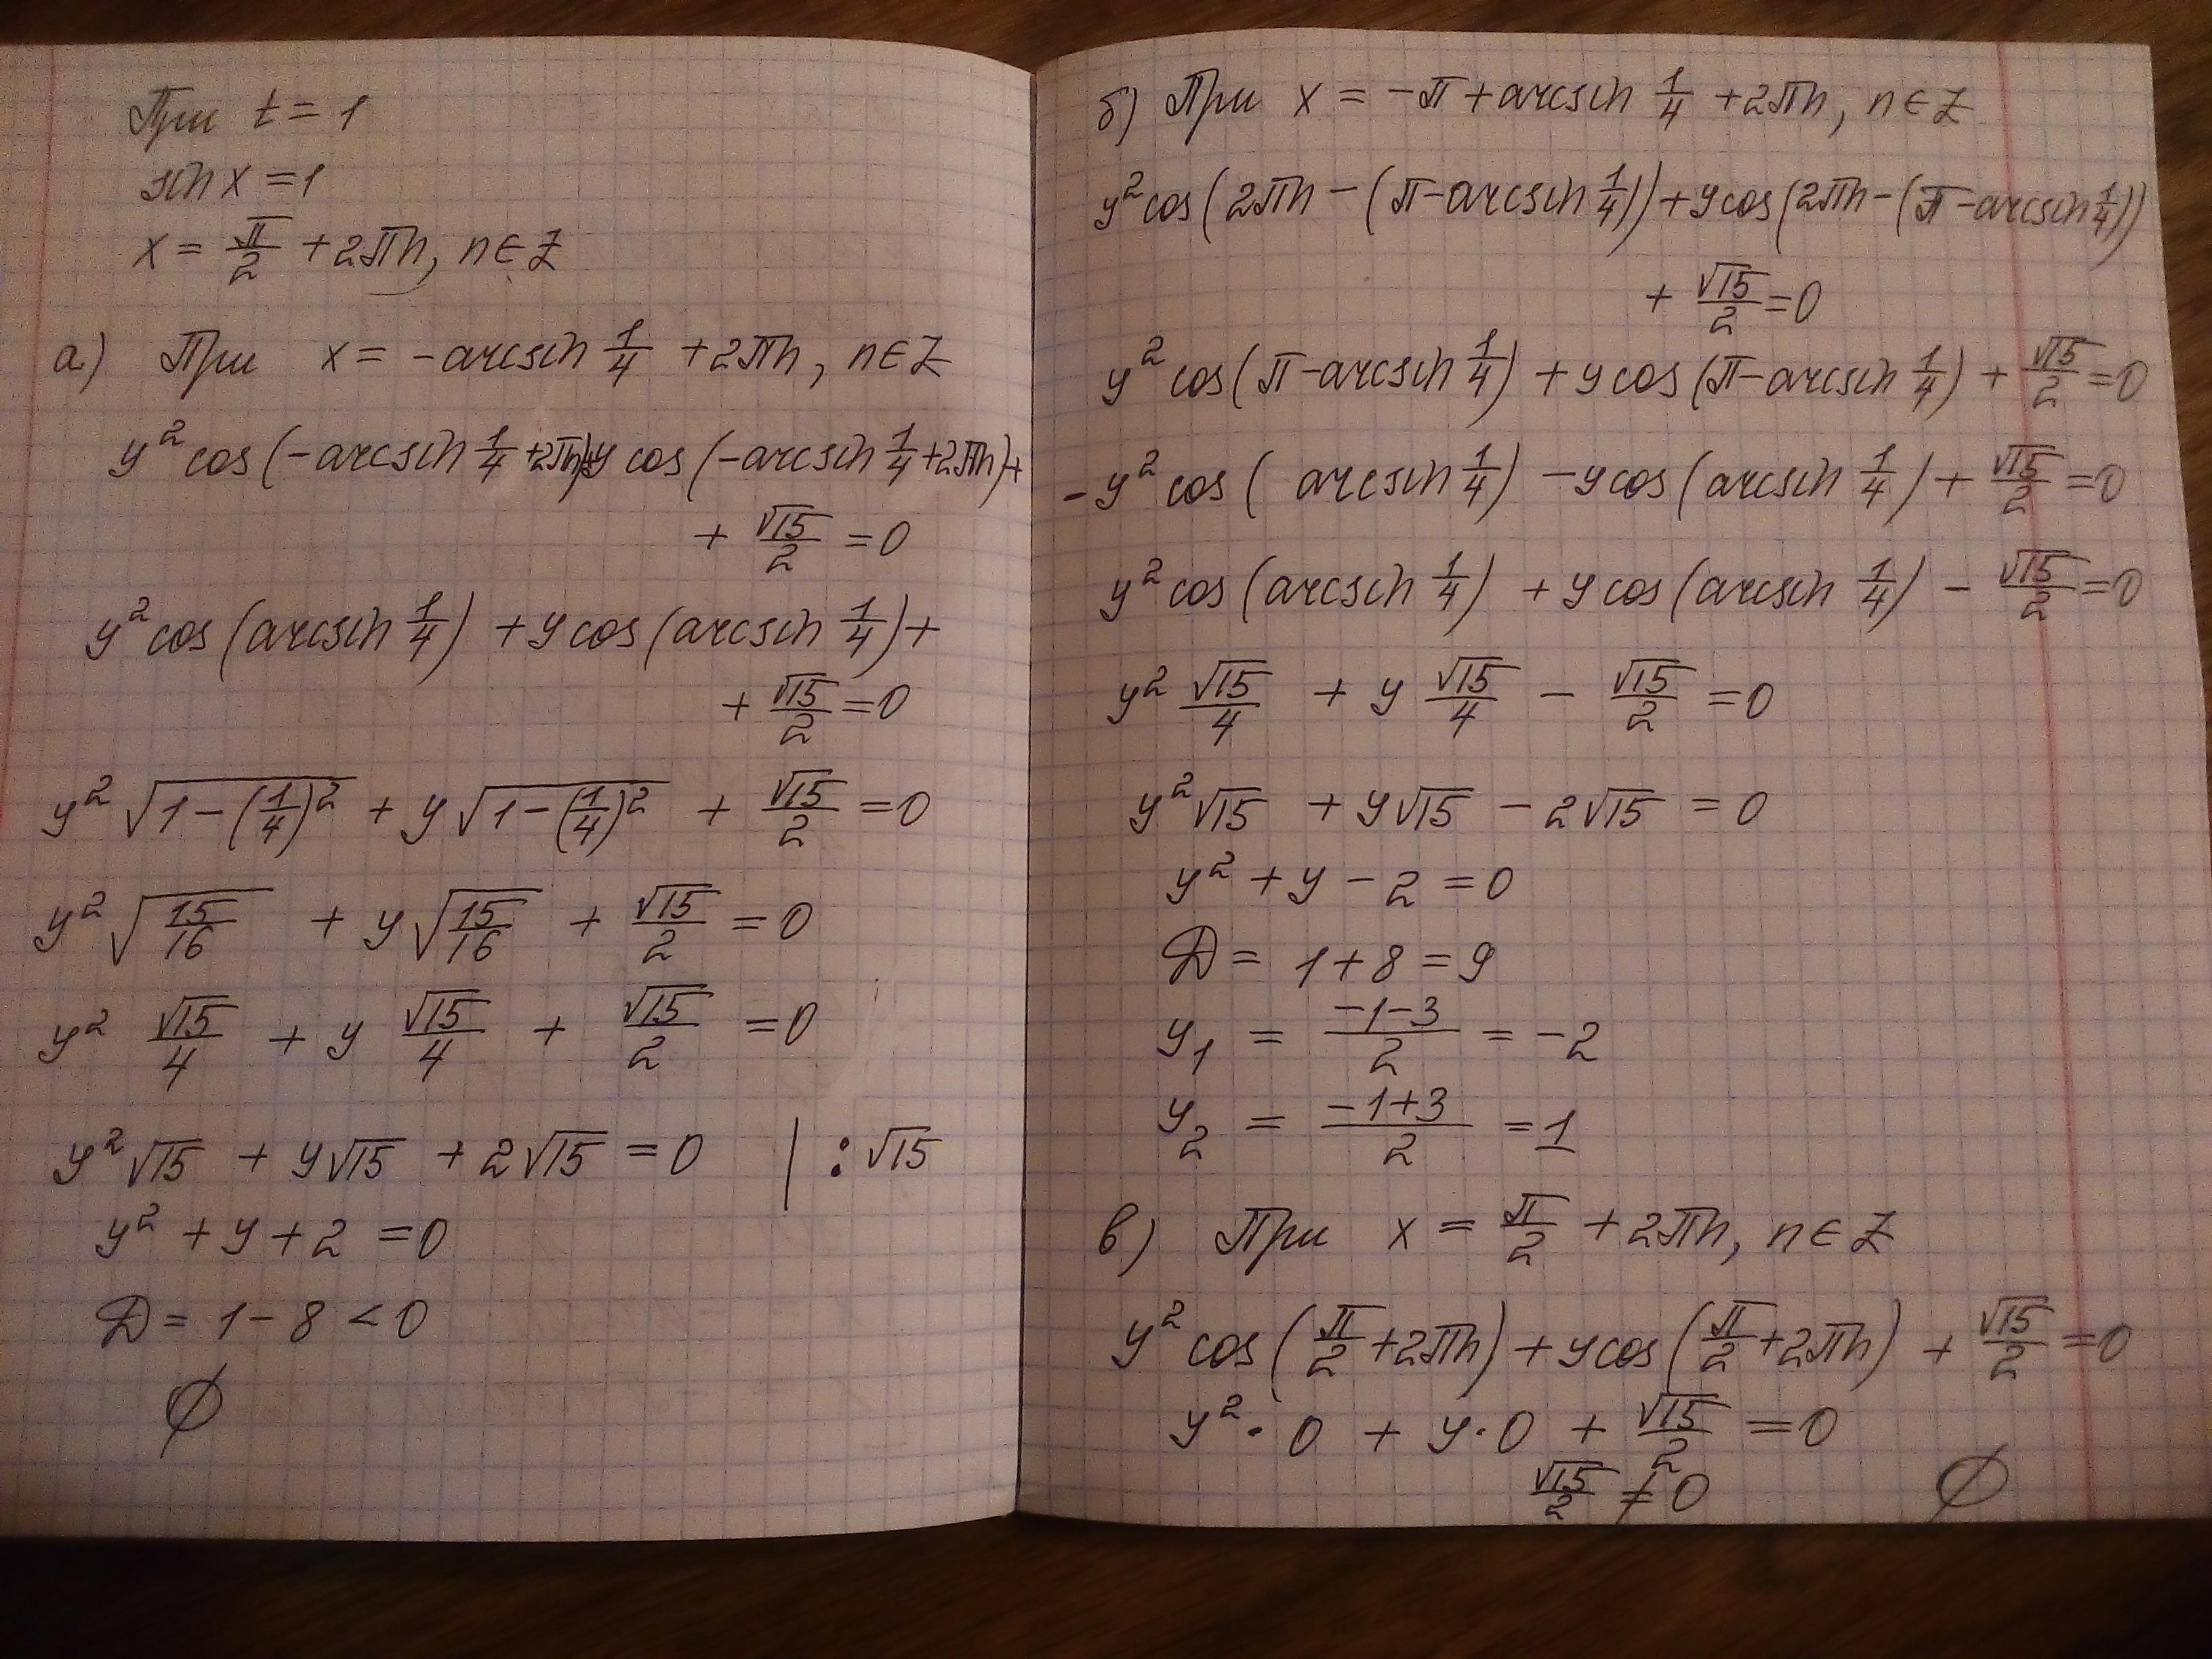 При t = 1
sin x = 1
x = π/2 + 2πn, n ∈ Z
а) При x = -arcsin 1/4 + 2πn, n ∈ Z
y² cos(-arcsin 1/4 + 2πn) + y cos(-arcsin 1/4 + 2πn) +
+ √15/2 = 0
y² cos(arcsin 1/4) + y cos(arcsin 1/4) +
+ √15/2 = 0
y² √(1 - (1/4)²) + y √(1 - (1/4)²) + √15/2 = 0
y² √(15/16) + y √(15/16) + √15/2 = 0
y² √15/4 + y √15/4 + √15/2 = 0
y² √15 + y √15 + 2√15 = 0 | : √15
y² + y + 2 = 0
Д = 1 - 8 < 0
∅
б) При x = -π + arcsin 1/4 + 2πn, n ∈ Z
y² cos(2πn - (π - arcsin 1/4)) + y cos(2πn - (π - arcsin 1/4))
+ √15/2 = 0
y² cos(π - arcsin 1/4) + y cos(π - arcsin 1/4) + √15/2 = 0
- y² cos( arcsin 1/4) - y cos(arcsin 1/4) + √15/2 = 0
y² cos(arcsin 1/4) + y cos(arcsin 1/4) - √15/2 = 0
y² √15/4 + y √15/4 - √15/2 = 0
y² √15 + y √15 - 2√15 = 0
y² + y - 2 = 0
Д = 1 + 8 = 9
y₁ = (-1-3)/2 = -2
y₂ = (-1+3)/2 = 1
в) При x = π/2 + 2πn, n ∈ Z
y² cos(π/2 + 2πn) + y cos(π/2 + 2πn) + √15/2 = 0
y² · 0 + y · 0 + √15/2 = 0
√15/2 ≠ 0 ∅